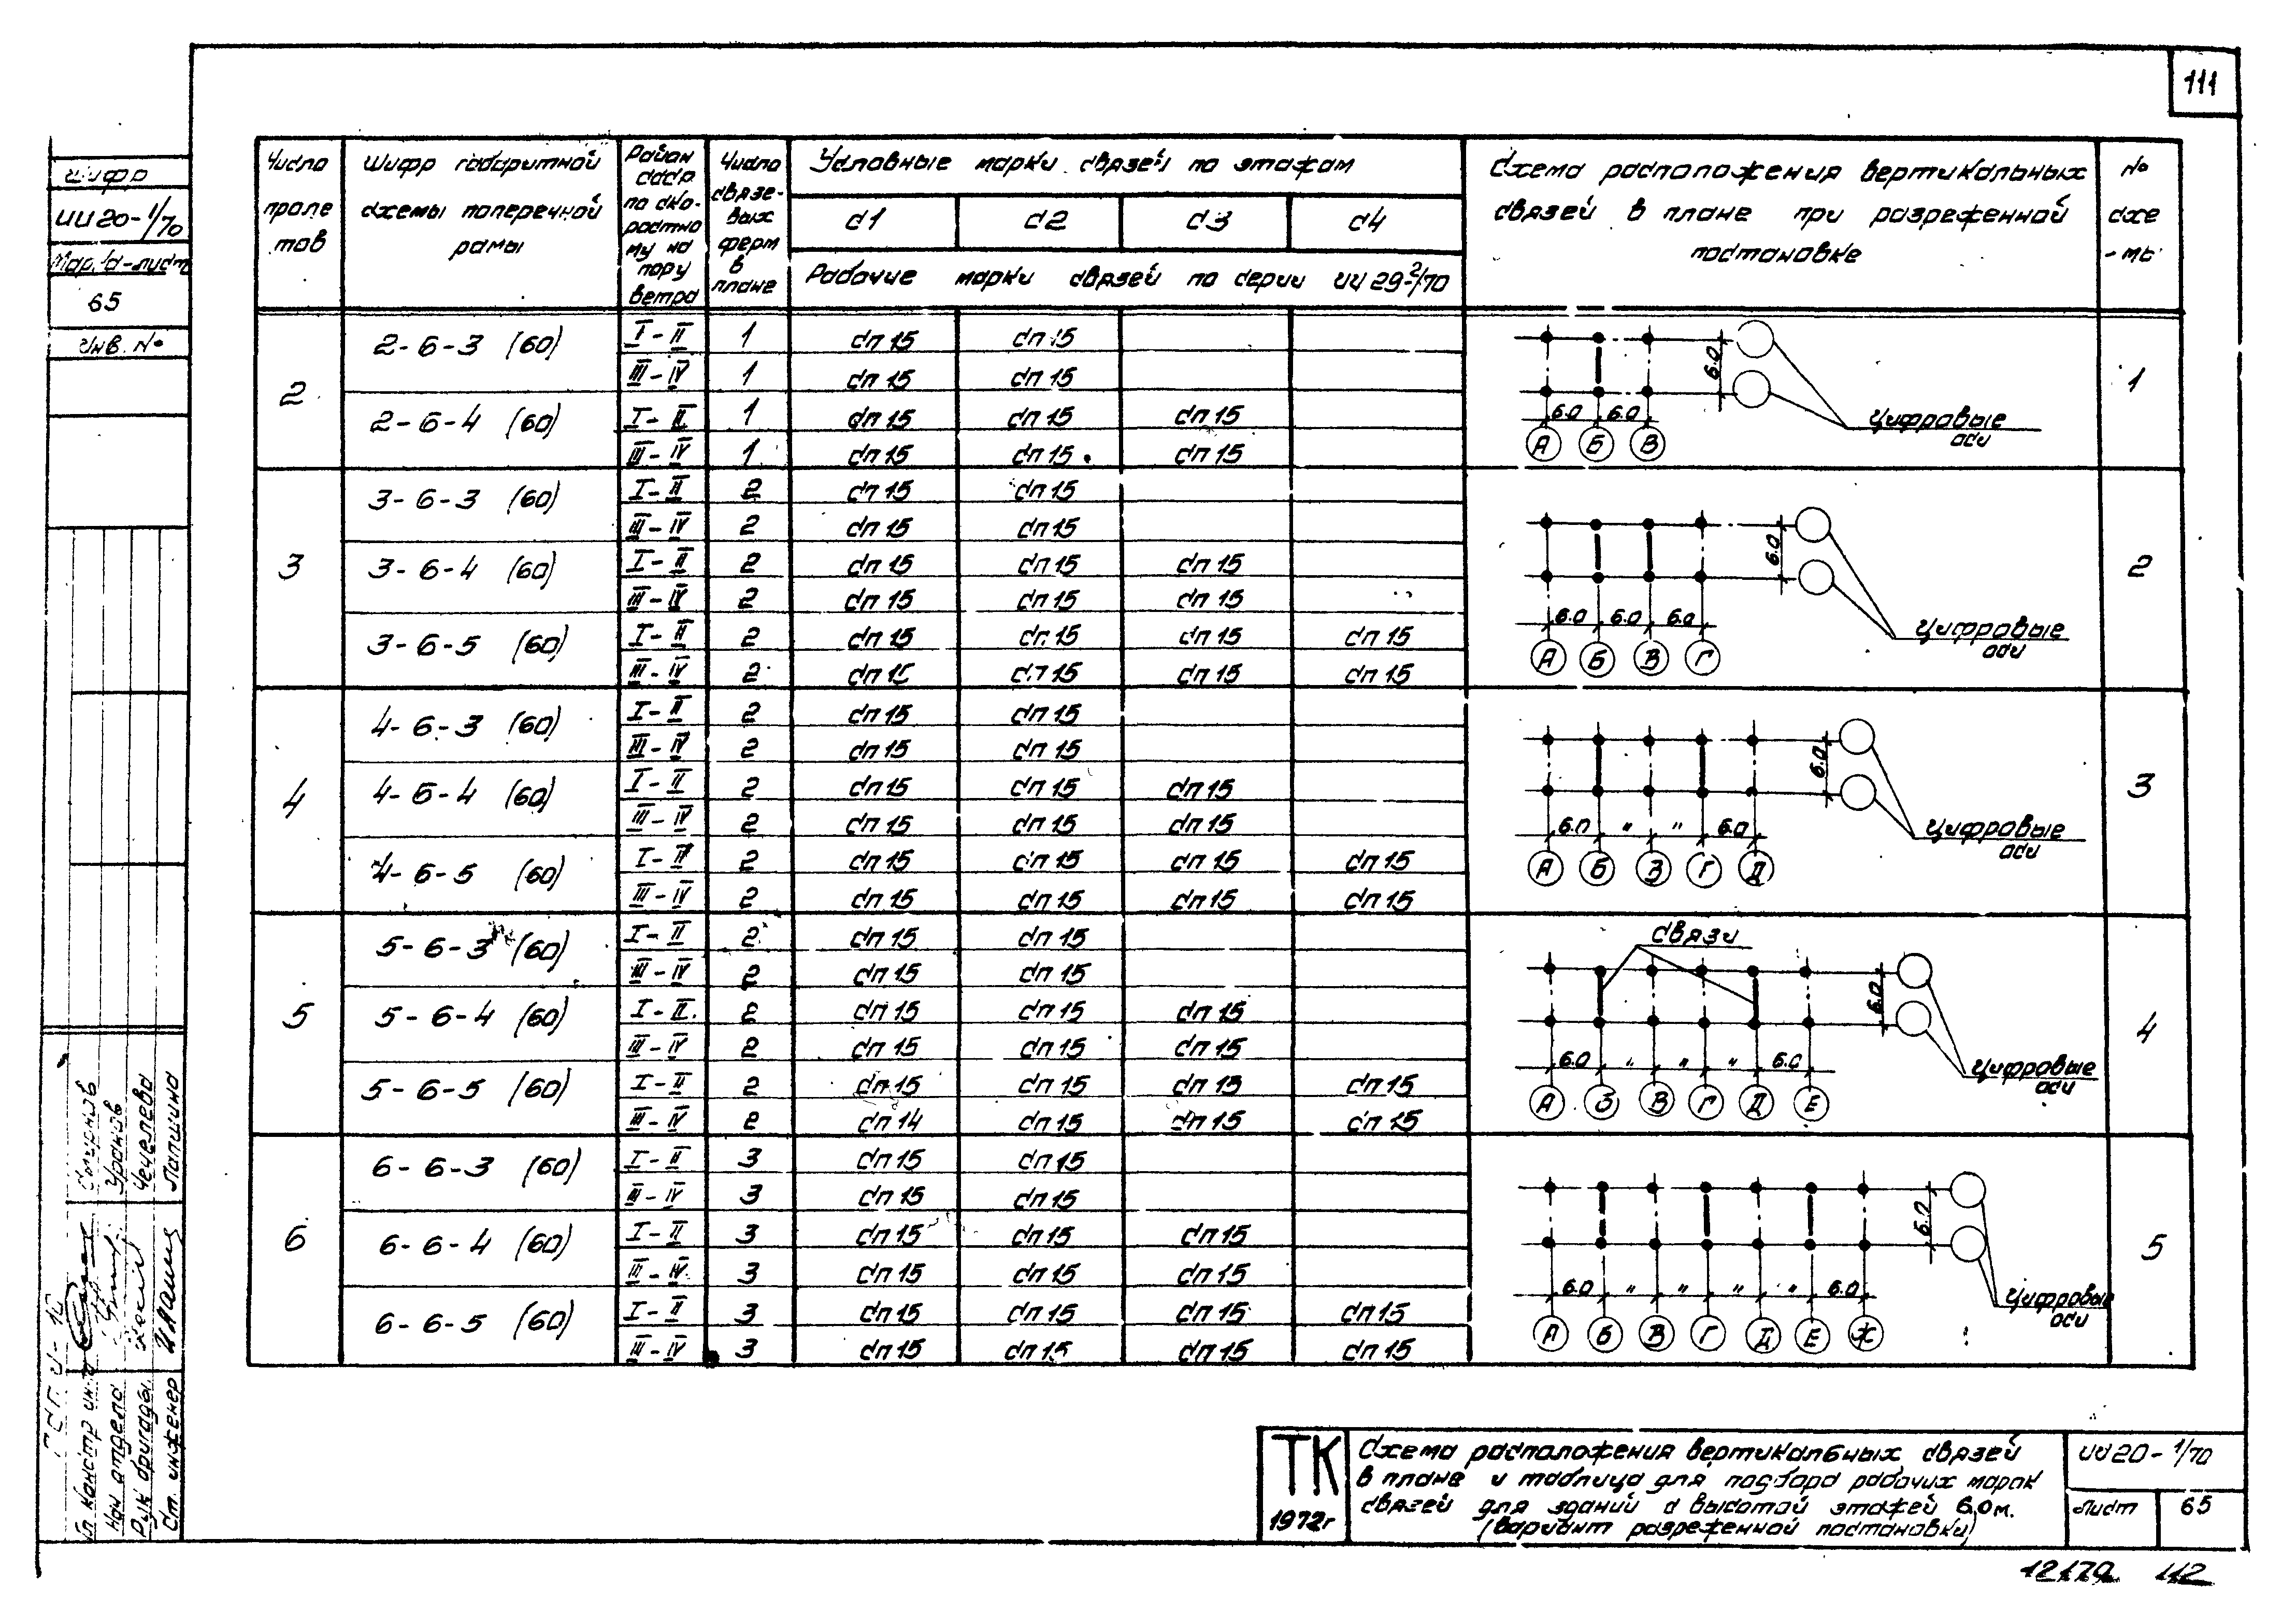 111
Шифр
ИИ20-1/70
Марка-лист
65
Инв. №
Число пролетов
Шифр габаритной схемы поперечной рамы
Район СССР по скоростному напору ветра
Число связевых ферм в плане
Условные марки связей по этажам
С1 С2 С3 С4
Рабочие марки связей по серии ИИ 29-2/70
Схема расположения вертикальных связей в плане при разреженной постановке
№ схемы
2
2-6-3 (60) I-II 1 СП 15 СП 15
III-IV 1 СП 15 СП 15
2-6-4 (60) I-II 1 СП 15 СП 15 СП 15
III-IV 1 СП 15 СП 15 СП 15
6.0
6.0 6.0
А Б В
Цифровые оси
1
3
3-6-3 (60) I-II 2 СП 15 СП 15
III-IV 2 СП 15 СП 15
3-6-4 (60) I-II 2 СП 15 СП 15 СП 15
III-IV 2 СП 15 СП 15 СП 15
3-6-5 (60) I-II 2 СП 15 СП 15 СП 15 СП 15
III-IV 2 СП 15 СП 15 СП 15 СП 15
6.0
6.0 6.0 6.0
А Б В Г
Цифровые оси
2
4
4-6-3 (60) I-II 2 СП 15 СП 15
III-IV 2 СП 15 СП 15
4-6-4 (60) I-II 2 СП 15 СП 15 СП 15
III-IV 2 СП 15 СП 15 СП 15
4-6-5 (60) I-II 2 СП 15 СП 15 СП 15 СП 15
III-IV 2 СП 15 СП 15 СП 15 СП 15
6.0
6.0 " " 6.0
А Б В Г Д
Цифровые оси
3
5
5-6-3 (60) I-II 2 СП 15 СП 15
III-IV 2 СП 15 СП 15
5-6-4 (60) I-II 2 СП 15 СП 15 СП 15
III-IV 2 СП 15 СП 15 СП 15
5-6-5 (60) I-II 2 СП 15 СП 15 СП 15 СП 15
III-IV 2 СП 14 СП 15 СП 15 СП 15
Связи
6.0
6.0 " " " 6.0
А Б В Г Д Е
Цифровые оси
4
6
6-6-3 (60) I-II 3 СП 15 СП 15
III-IV 3 СП 15 СП 15
6-6-4 (60) I-II 3 СП 15 СП 15 СП 15
III-IV 3 СП 15 СП 15 СП 15
6-6-5 (60) I-II 3 СП 15 СП 15 СП 15 СП 15
III-IV 3 СП 15 СП 15 СП 15 СП 15
6.0
6.0 " " " " 6.0
А Б В Г Д Е Ж
Цифровые оси
5
Гл констр ин-та Смирнов
Нач отдела Ураков
Рук бригады Чечелева
Ст. инженер Лапшина
ТК
1972г
Схема расположения вертикальных связей
в плане и таблица для подбора рабочих марок
связей для зданий с высотой этажей 6,0м.
(вариант разреженной постановки)
ИИ20-1/70
Лист 65
12179 112